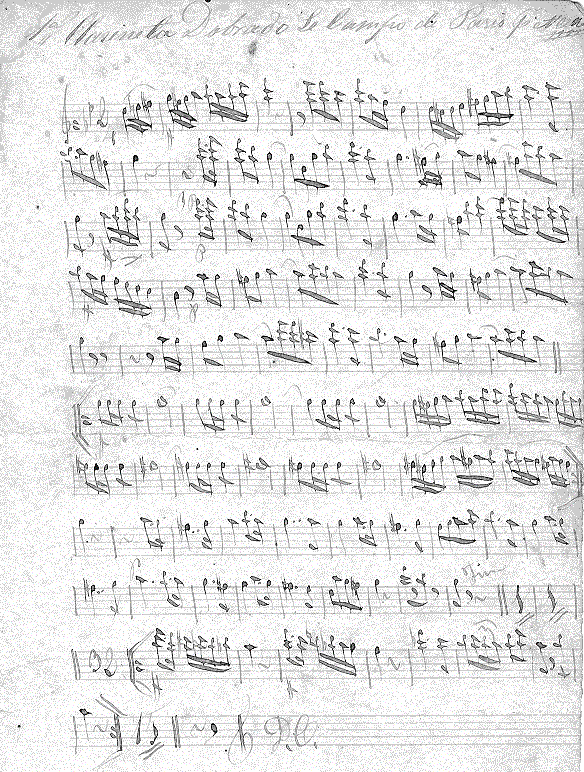 1ª Clarineta Dobrado Le Campo de Paris
Fim
32
D.C.